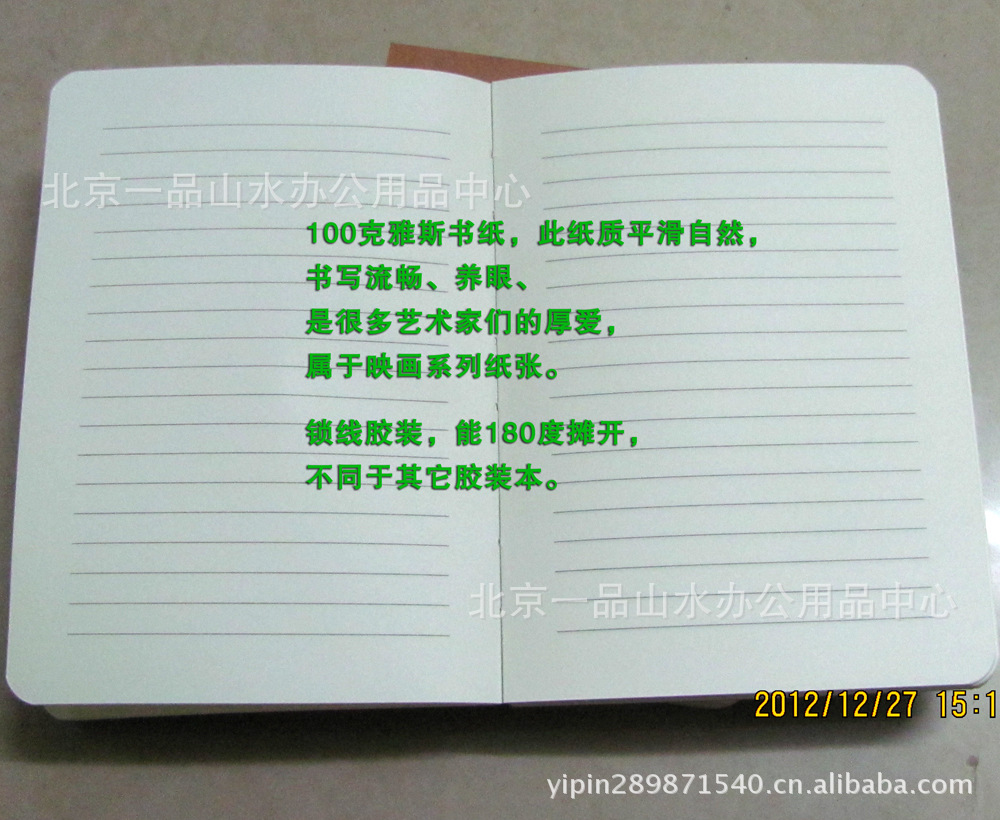 北京一品山水办公用品中心
100克雅斯书纸，此纸质平滑自然，
书写流畅、养眼、
是很多艺术家们的厚爱，
属于映画系列纸张。
锁线胶装，能180度摊开，
不同于其它胶装本。
北京一品山水办公用品中心
2012/12/27 15:1
yipin289871540.cn.alibaba.com